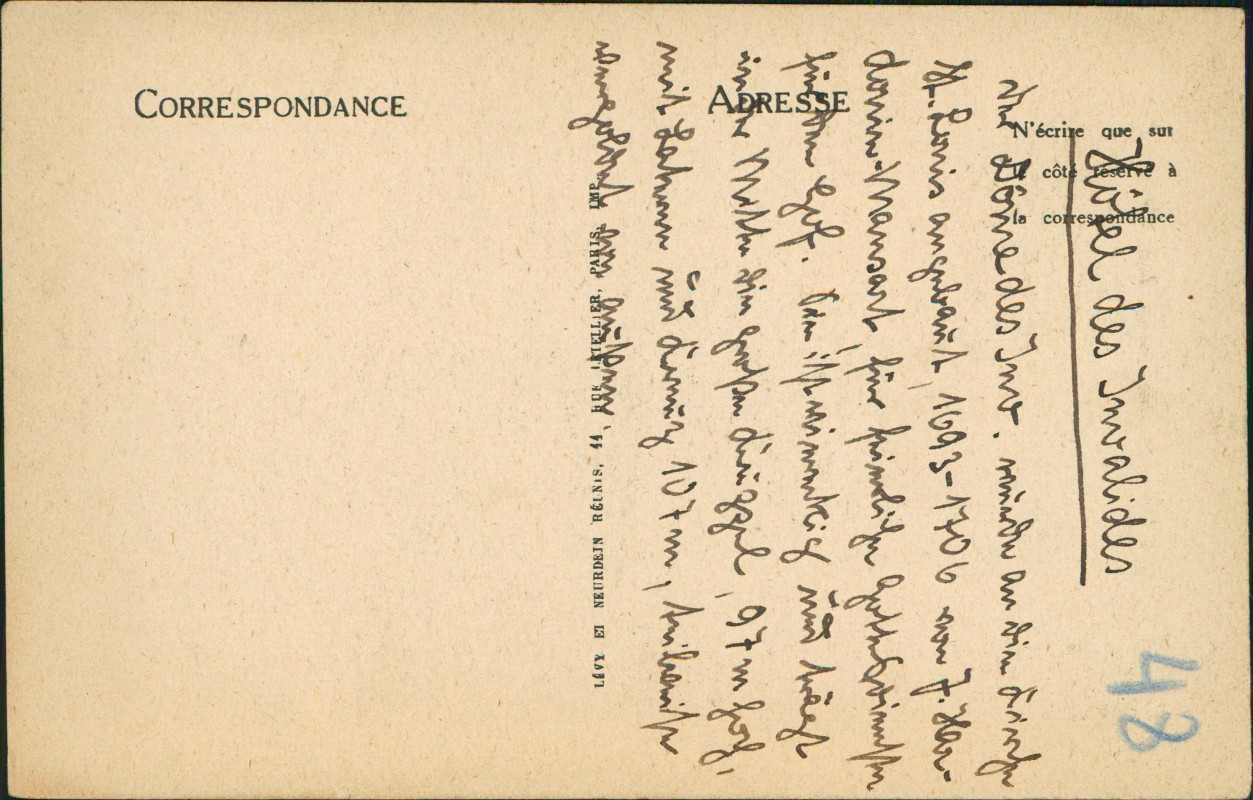 CORRESPONDANCE
ADRESSE
N'écrire que sur
le côté réservé à
la correspondance
LÉVY ET NEURDEIN RÉUNIS, 44, RUE LETELLIER, PARIS, IMP.
Hôtel des Invalides
Der Dôme des Inv. wurde an die Kirche
St. Louis angebaut, 1693-1706 von J. Har-
douin-Mansart für feierliche Gottesdienste
für den Hof. ist viereckig und trägt
in der Mitte die große Kuppel, 97 m hoch,
mit Laterne und Kreuz 107 m, teilweise
vergoldet
48